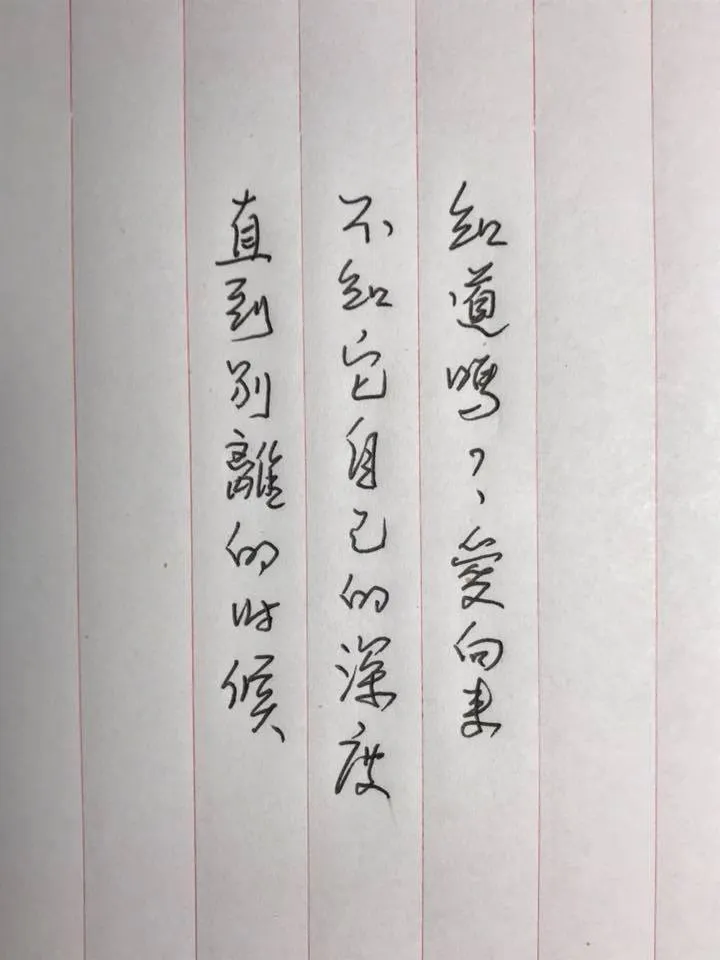 知道嗎？愛向来
不知它自己的深度
直到别離的时候